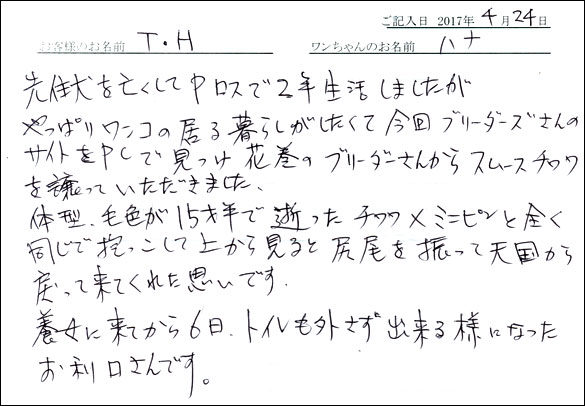 ご記入日 2017年 4月24日
お客様のお名前 T・H ワンちゃんのお名前 ハナ
先住犬を亡くしてPロスで2年生活しましたが
やっぱりワンコの居る暮らしがしたくて今回ブリーダーズさんの
サイトをPCで見つけ花巻のブリーダーさんからスムースチワワ
を譲っていただきました、
体型、毛色が15才半で逝ったチワワ×ミニピンと全く
同じで抱っこして上から見ると尻尾を振って天国から
戻って来てくれた思いです.
養女に来てから6日、トイレも外さず出来る様になった
お利口さんです。